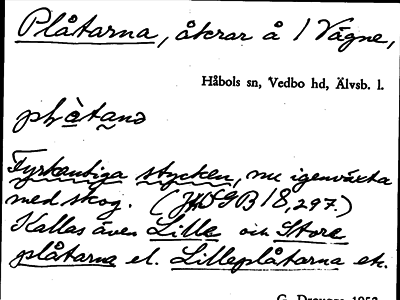 Plåtarna, åkrar å 1 Vågne,
Håbols sn, Vedbo hd, Älvsb. l.
plàtanə
Fyrkantiga stycken, nu igenväxta
med skog. (18, 297.)
Kallas även Lille och Store
plåtarna el. Lilleplåtarna etc.